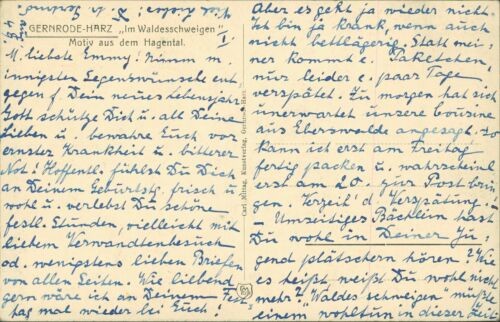 GERNRODE-HARZ „Im Waldesschweigen"
Motiv aus dem Hagental.
I.
M. liebste Emmy! Nimm m.
innigsten Segenswünsche ent-
gegen f. Dein neues Lebensjahr
Gott schütze Dich u. all Deine
Lieben u. bewahre Euch vor
ernster Krankheit u. bitterer
Not! Hoffentl. fühlst Du Dich
an Deinem Geburtstg. frisch u.
wohl u. verlebst Du schöne
festl. Stunden, vielleicht mit
liebem Verwandtenbesuch
od. wenigstens lieben Briefen
von allen Seiten. Wie liebend
gern wäre ich an Deinem Fest
tag mal wieder bei Euch!
Carl Mittag, Kunstverlag, Gernrode-Harz
Aber es geht ja wieder nicht.
Ich bin ja krank, wenn auch
nicht bettlägerig. Statt mei-
ner kommt e. Paketchen,
nur leider e. paar Tage
verspätet. Zu morgen hat sich
unerwartet unsere Cousine
aus Eberswalde angesagt. So
kann ich erst am Freitag
fertig packen u. wahrscheinl.
erst am 20. zur Post brin-
gen. Verzeih' d. Verspätung. -
- Umseitiges Bächlein hast
Du wohl in Deiner Ju-
gend plätschern hören? Wie
es heißt weißt Du wohl nicht
mehr? "Waldesschweigen" müßte
einem wohltun in dieser Zeit